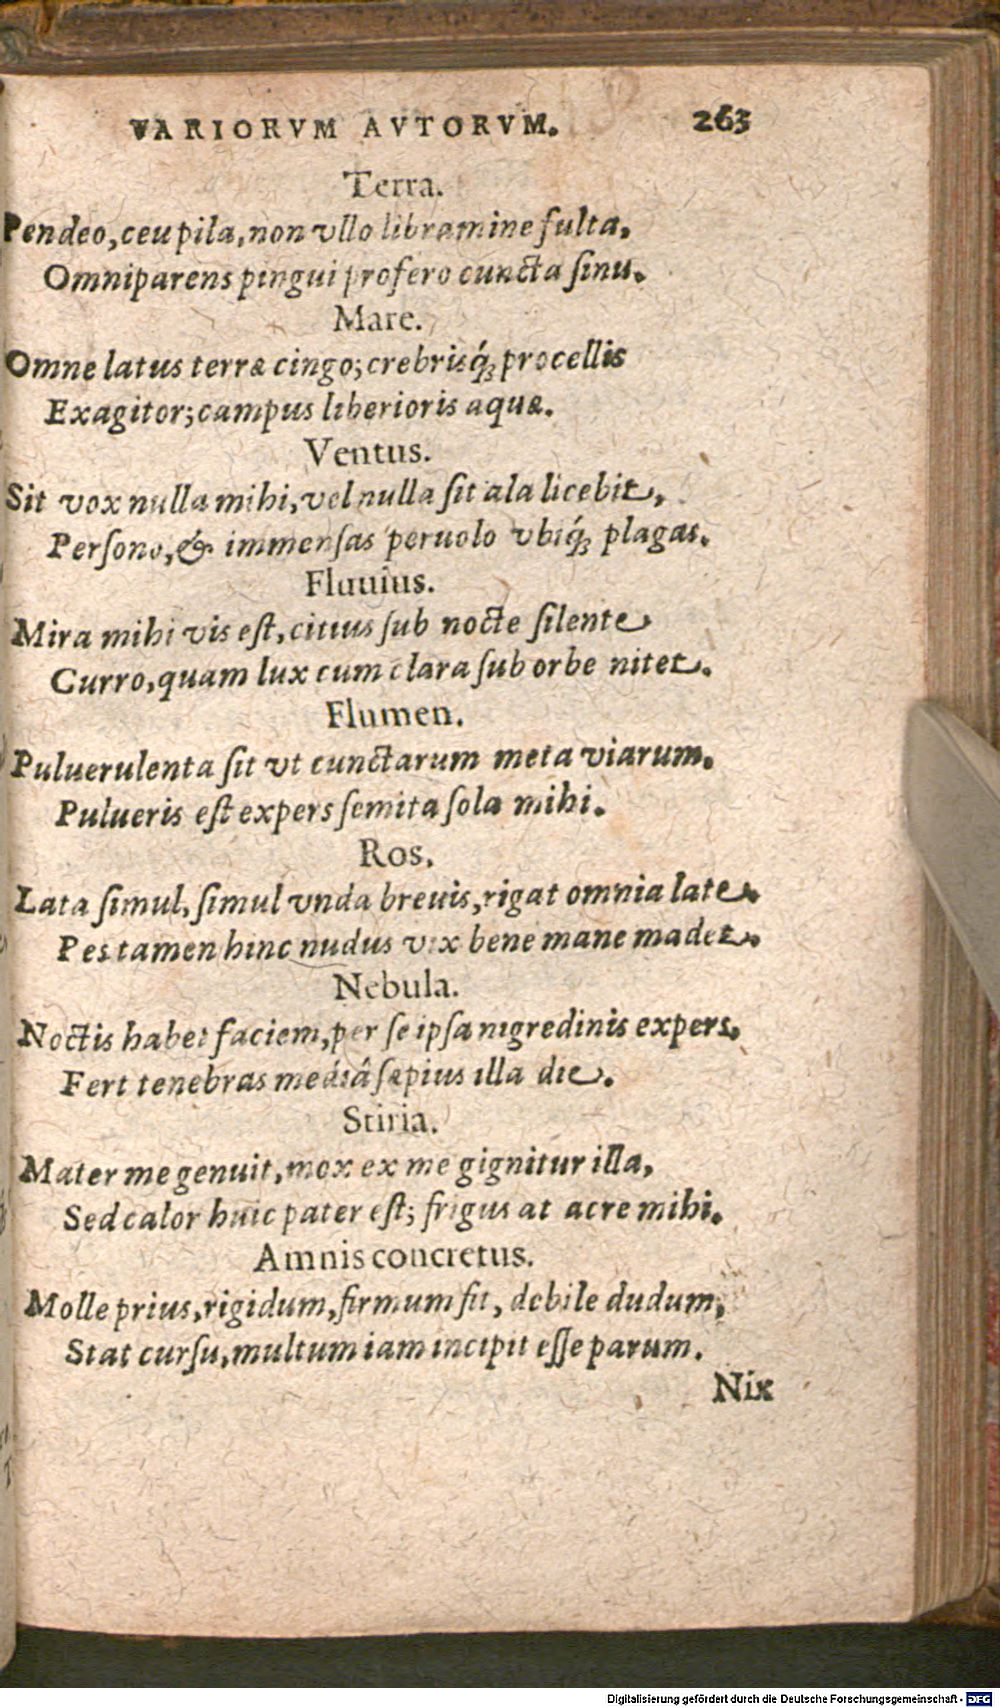 VARIORVM AVTORVM. 263
Terra.
Pendeo, ceu pila, non vllo libramine fulta,
Omniparens pingui profero cuncta ſinu.
Mare.
Omne latus terræ cingo; crebrisq́; procellis
Exagitor; campus liberioris aquæ.
Ventus.
Sit vox nulla mihi, vel nulla ſit ala licebit,
Perſono, & immenſas peruolo vbiq́; plagas.
Fluuius.
Mira mihi vis eſt, citius ſub nocte ſilente
Curro, quam lux cum clara ſub orbe nitet.
Flumen.
Puluerulenta ſit vt cunctarum meta viarum.
Pulueris eſt expers ſemita ſola mihi.
Ros.
Lata ſimul, ſimul vnda breuis, rigat omnia late.
Pes tamen hinc nudus vix bene mane madet.
Nebula.
Noctis habet faciem, per ſe ipſa nigredinis expers.
Fert tenebras mediâ ſæpius illa die.
Stiria.
Mater me genuit, mox ex me gignitur illa,
Sed calor huic pater eſt; frigus at acre mihi.
Amnis concretus.
Molle prius, rigidum, firmum fit, debile dudum,
Stat curſu, multum iam incipit eſſe parum.
Nix
Digitalisierung gefördert durch die Deutsche Forschungsgemeinschaft - DFG